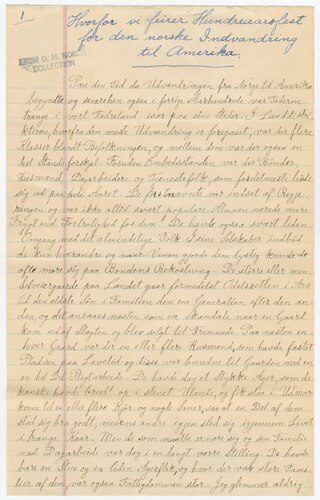 1
Hvorfor vi feirer Hundreaarsfest
for den norske Indvandring
til Amerika.
FROM O. M. NORLIE
COLLECTION
Paa den Tid da Udvandringen fra Norge til Amerika
begyndte og senerehen ogsaa i forrige Aarhundrede var Tiderne
trange i vort Fædreland, især paa sine Steder. I Landdistrik-
terne, hvorfra den meste Udvandring er foregaaet, var der flere
Klasser blandt Befolkningen, og mellem dem var der ogsaa en
hel Standsforskel. Foruden Embedsstanden var der Bønder
Husmænd Dagarbeidere og Tjenestefolk som fordetmeste leiede
sig ud paa hele Aaret. De førstnevnte var indsat af Regje-
ringen og var ikke altid svært populære Almuen nærede mere
Frygt end Fortrolighed for dem. De havde ogsaa svært liden
Omgang med det almindelige Folk. I sine Selskaber indbød
de kun hverandre og naar Einen gjorde den lystig kunde de
ofte more sig paa Bondens Bekostning. De større eller min-
dre Gaarde paa Landet gaar formedelst Odelsretten i Arv
til den ældste Søn i Familien den ene Generation efter den an-
den, og det ansaaes næsten som en Skandale naar en Gaard
kom ud af Slægten og blev solgt til Fremmede. Paa næsten en-
hver Gaard var der en eller flere Husmænd, som havde fæstet
Pladsen paa Levetid og disse var bundne til Gaarden med en
en hel Del Pligtarbeide. De havde dog et Stykke Ager, som de
kanske havde brudt op i stenet Alende, og fik slaa i Udmar-
kerne til en eller flere Kjør og nogle Sauer, saa at en Del af dem
stod sig bra godt, medens andre igjen sled sig igjennem Livet
i trange Kaar. Men de som maatte ernære sig og sin Familie
med Dagarbeide var dog i en langt værre Stilling. De havde
bare en Stue og en liden Ageflek, og hvor der var store Fami-
lier af dem, var ogsaa Fattigdommen stor. Jeg glemmer aldrig